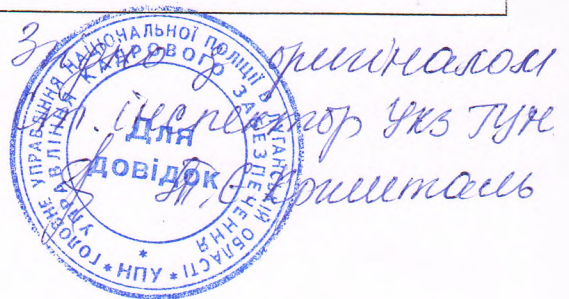 Згідно з оригіналом
ст. інспектор УКЗ ГУН
Кришталь
ГОЛОВНЕ УПРАВЛІННЯ НАЦІОНАЛЬНОЇ ПОЛІЦІЇ В ОБЛАСТІ * НПУ *
УПРАВЛІННЯ КАДРОВОГО ЗАБЕЗПЕЧЕННЯ
Для
довідок